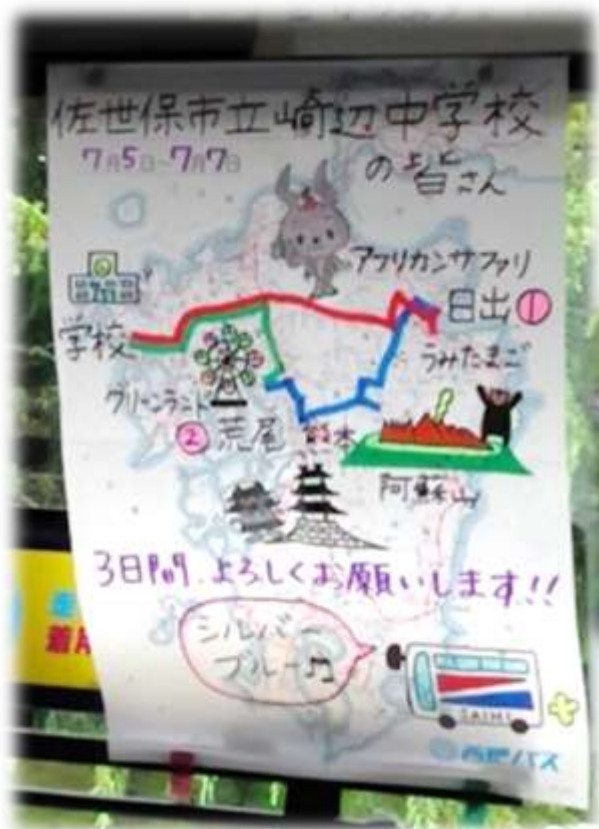 佐世保市立崎辺中学校
7月5日~7月7日
の皆さん
アフリカンサファリ
日出①
学校
うみたまご
グリーンランド
②荒尾 熊本
阿蘇山
3日間、よろしくお願いします!!
シルバー
ブルー♫
SAIHI
西肥バス